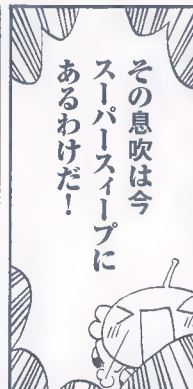 その息吹は今
スーパースィープに
あるわけだ!